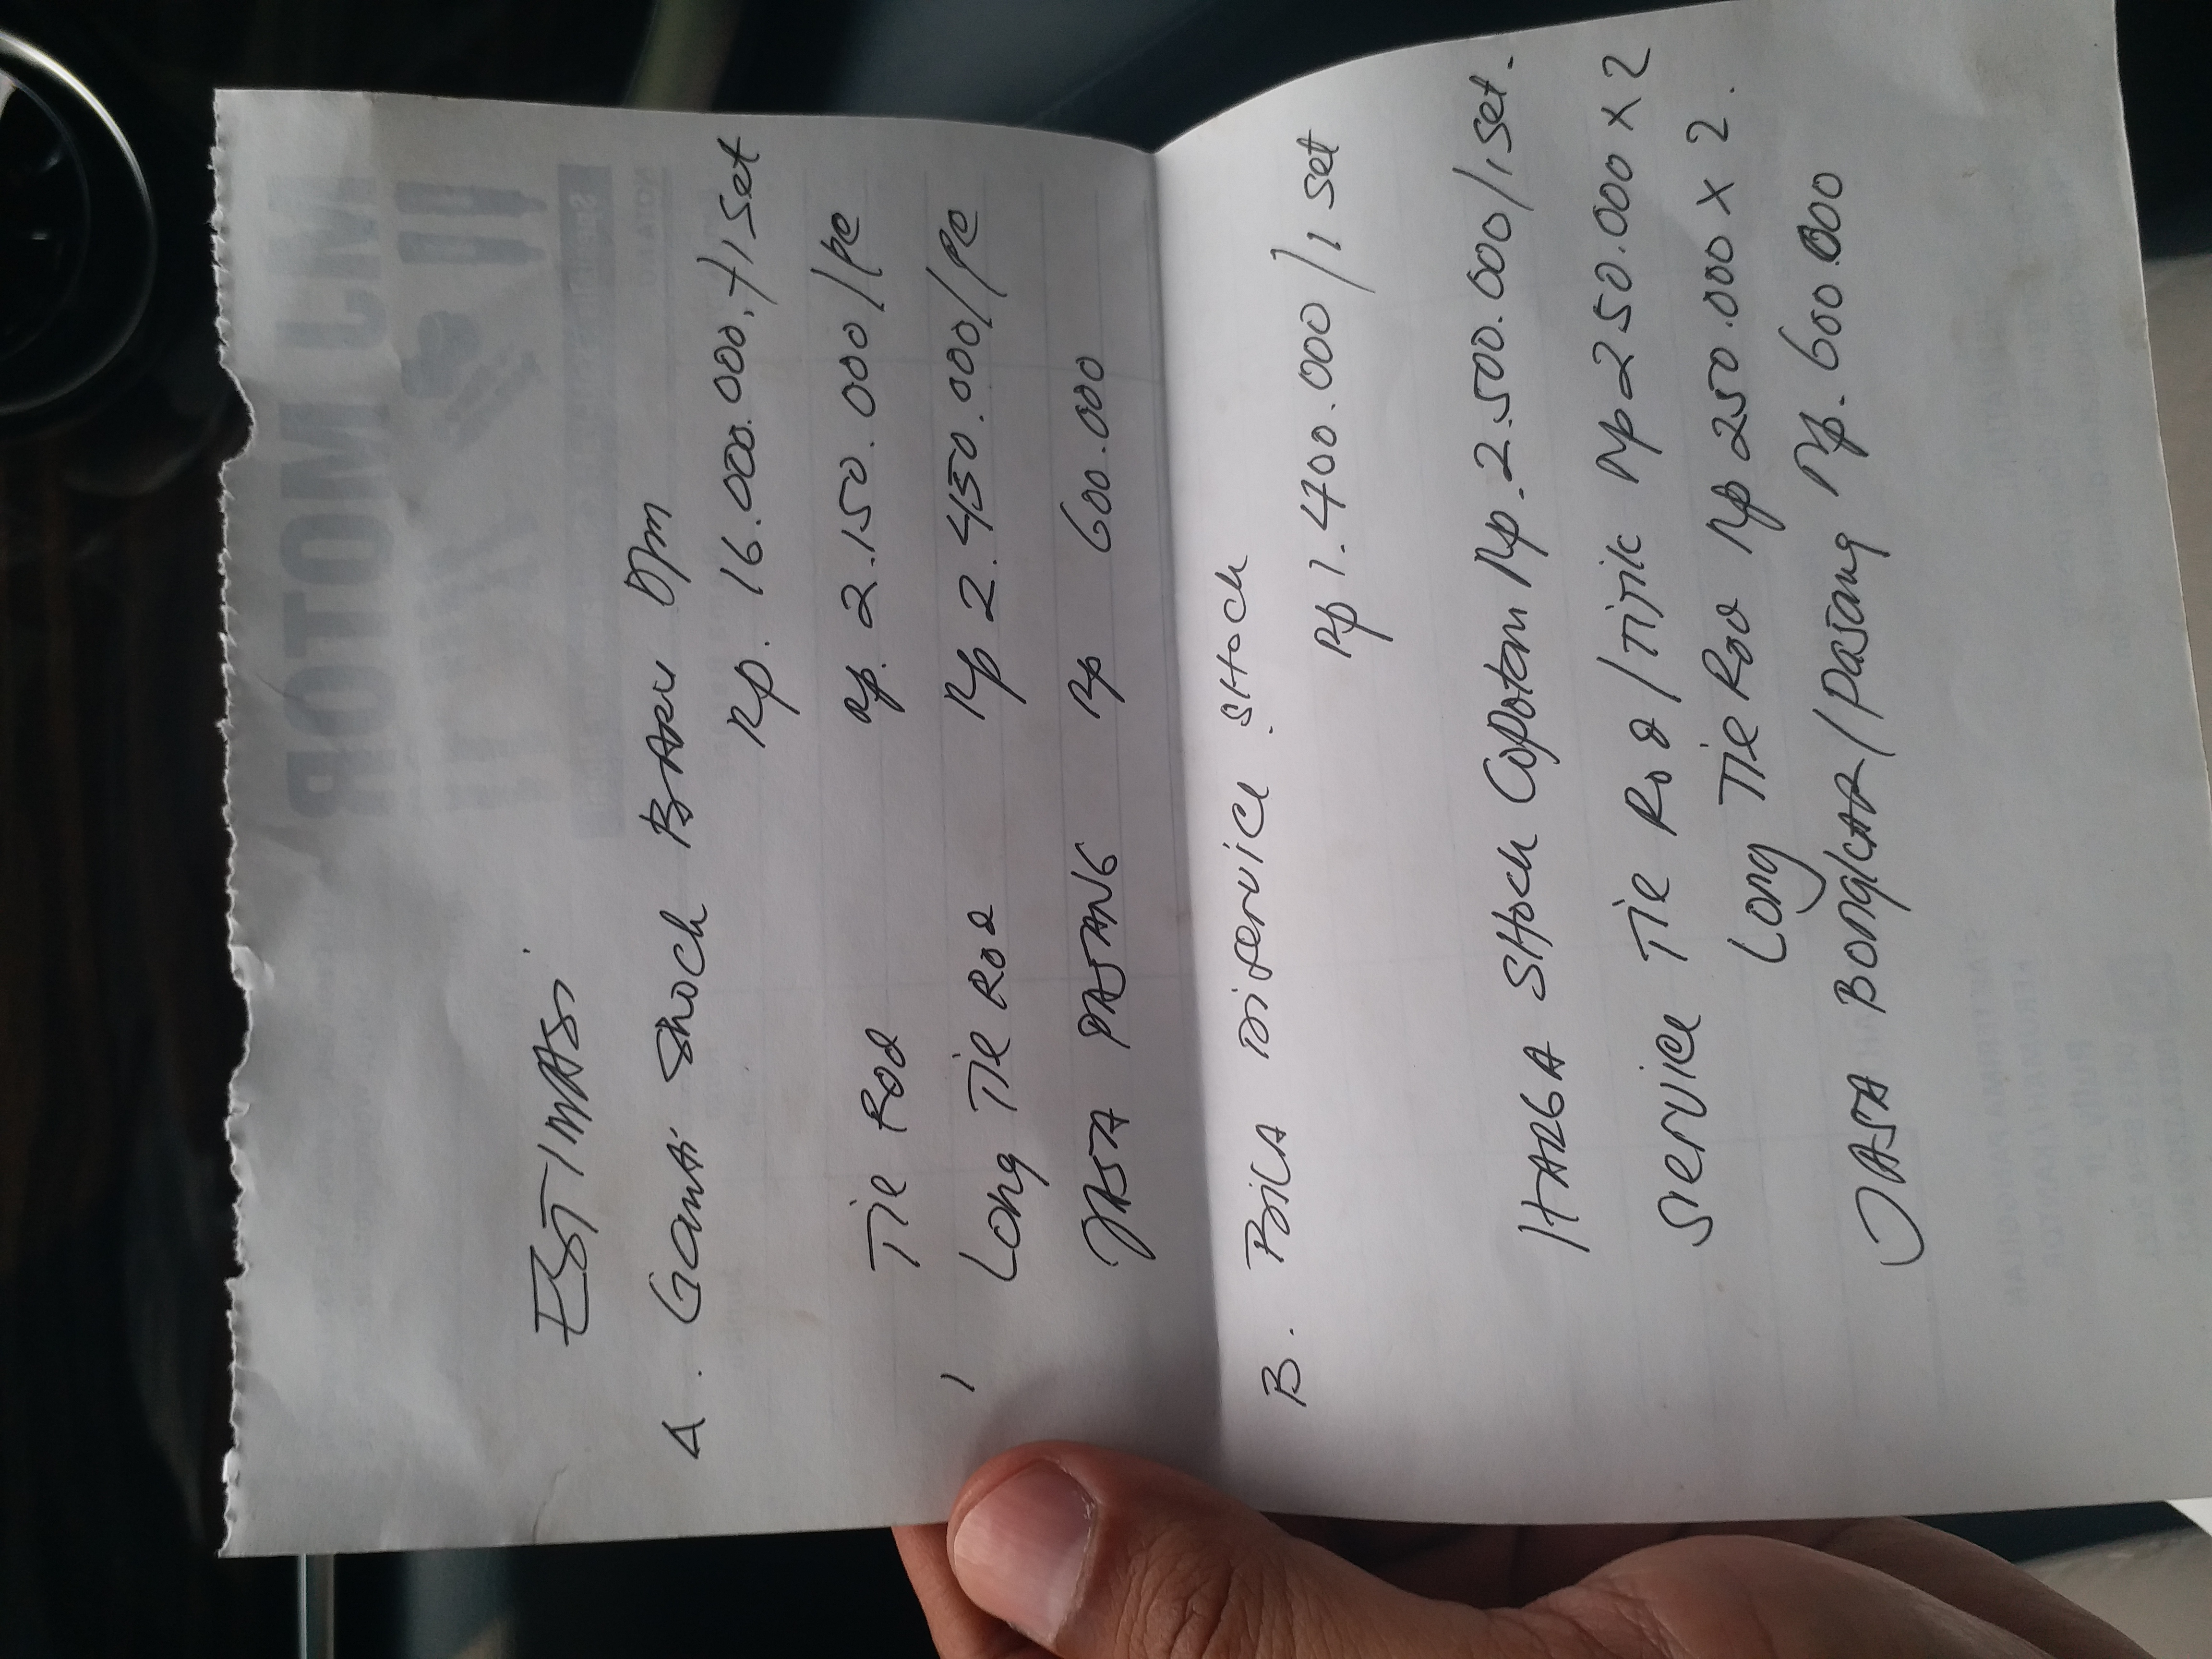 ESTIMASI
A. Ganti Shock BARU Opm
Rp. 16.000.000,-/1 set
Tie Rod Rp. 2.150.000/pc
Long Tie Rod Rp 2.450.000/pc
JASA PASANG Rp 600.000
B. BiLA DiService SHock
Rp 1.400.000/1 set
HARGA SHock Copotan Rp.2.500.000/1 set.
Service Tie Rod/TiTik Rp 250.000 x 2
Long Tie Rod Rp 250.000 x 2.
JASA BONGKAR/pasang Rp. 600.000
MJ MOTOR